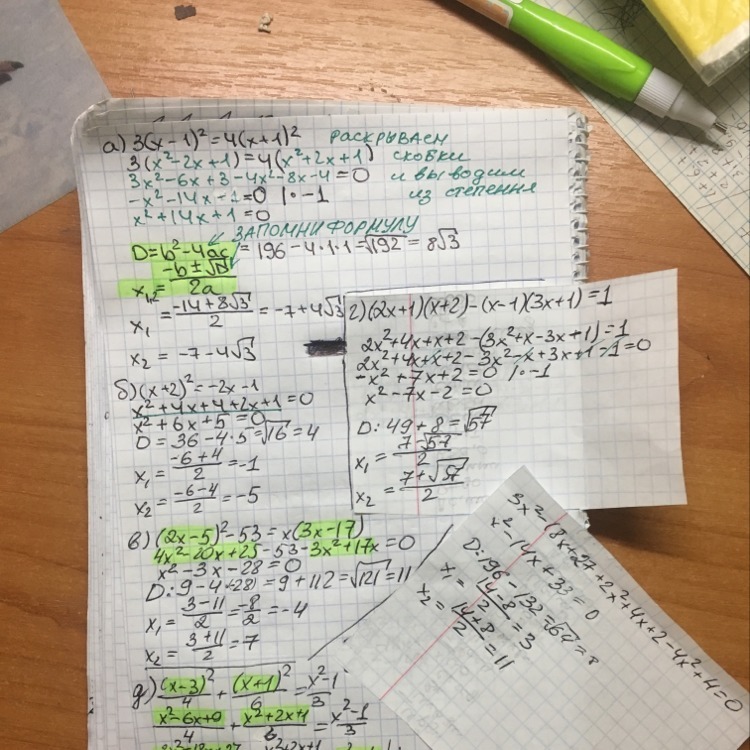 а) 3(x-1)² = 4(x+1)² РАСКРЫВАЕМ
3(x²-2x+1)=4(x²+2x+1) СКОБКИ
3x²-6x+3-4x²-8x-4=0 И ВЫВОДИМ
-x²-14x-1=0 |·-1 ИЗ СТЕПЕНЯ
x²+14x+1=0
ЗАПОМНИ ФОРМУЛУ
D=b²-4ac = 196-4·1·1=√192 = 8√3
x₁,₂= (-b±√D)/2a
x₁ = (-14+8√3)/2 = -7+4√3
x₂ = -7-4√3
б) (x+2)²=-2x-1
x²+4x+4+2x+1=0
x²+6x+5=0
D=36-4·5=√16=4
x₁ = (-6+4)/2 = -1
x₂ = (-6-4)/2 = -5
в) (2x-5)²-53=x(3x-17)
4x²-20x+25-53-3x²+17x=0
x²-3x-28=0
D: 9-4·(-28)=9+112=√121=11
x₁ = (3-11)/2 = -8/2 = -4
x₂ = (3+11)/2 = 7
д) (x-3)²/4 + (x+1)²/6 = (x²-1)/3
(x²-6x+9)/4 + (x²+2x+1)/6 = (x²-1)/3
г) (2x+1)(x+2)-(x-1)(3x+1)=1
2x²+4x+x+2-(3x²+x-3x+1)=1
2x²+4x+x+2-3x²-x+3x+1-1=0
-x²+7x+2=0 |·-1
x²-7x-2=0
D: 49+8=√57
x₁ = (7-√57)/2
x₂ = (7+√57)/2
3x²-18x+27+2x²+4x+2-4x²+4=0
x²-14x+33=0
D: 196-132=√64=8
x₁ = (14-8)/2 = 3
x₂ = (14+8)/2 = 11